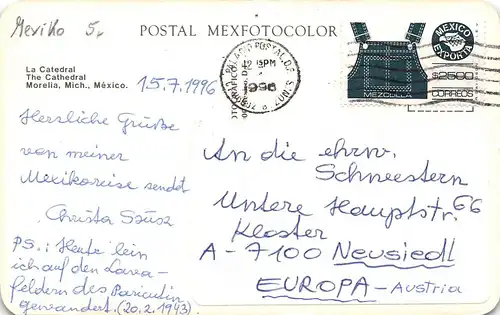 Mexiko 5.
POSTAL MEXFOTOCOLOR
La Catedral
The Cathedral
Morelia, Mich., México.
15.7.1996
PALACIO POSTAL, D.F.
12 15PM
1996
MEXICO
EXPORTA
$2500
MEZCLILLA
CORREOS
Herzliche Grüße
von meiner
Mexikoreise sendet
Christa
PS.: Heute bin
ich auf den Lava-
feldern des Paricutin
gewandert. (20.2.1943)
An die ehrw.
Schwestern
Untere Hauptstr. 66
Kloster
A - 7100 Neusiedl
EUROPA - Austria